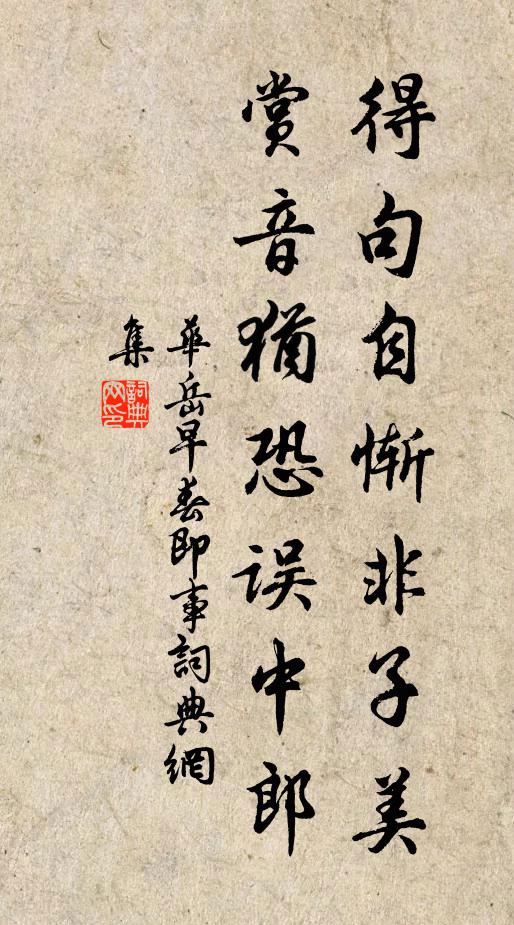 得句自惭非子美
赏音犹恐误中郎
華岳早春即事詞典網
集
詞典
网印